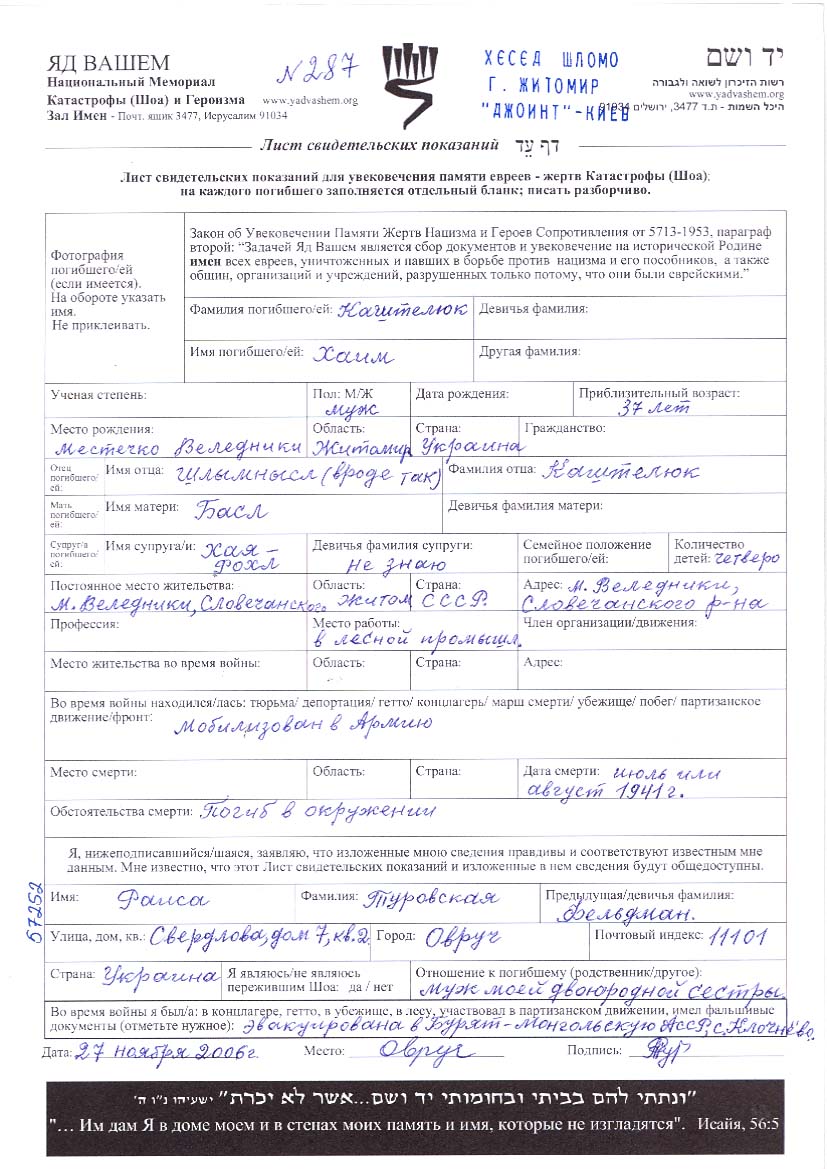 ЯД ВАШЕМ
Национальный Мемориал
Катастрофы (Шоа) и Героизма www.yadvashem.org
Зал Имен - Почт. ящик 3477, Иерусалим 91034
N 287
ХЄСЄД ШЛОМО
Г. ЖИТОМИР
"ДЖОИНТ"-КИЕВ
יד ושם
רשות הזיכרון לשואה ולגבורה
www.yadvashem.org
היכל השמות - ת.ד 3477, ירושלים 91034
Лист свидетельских показаний דף עֵד
Лист свидетельских показаний для увековечения памяти евреев - жертв Катастрофы (Шоа);
на каждого погибшего заполняется отдельный бланк; писать разборчиво.
Фотография
погибшего/ей
(если имеется).
На обороте указать
имя.
Не приклеивать.
Закон об Увековечении Памяти Жертв Нацизма и Героев Сопротивления от 5713-1953, параграф
второй: “Задачей Яд Вашем является сбор документов и увековечение на исторической Родине
имен всех евреев, уничтоженных и павших в борьбе против нацизма и его пособников, а также
общин, организаций и учреждений, разрушенных только потому, что они были еврейскими.”
Фамилия погибшего/ей: Каштелюк Девичья фамилия:
Имя погибшего/ей: Хаим Другая фамилия:
Ученая степень: Пол: М/Ж муж Дата рождения: Приблизительный возраст: 37 лет
Место рождения: Область: Страна: Гражданство:
Местечко Веледники Житомир Украина
Отец погибшего/ей: Имя отца: Шлымнысл (вроде так) Фамилия отца: Каштелюк
Мать погибшего/ей: Имя матери: Басл Девичья фамилия матери:
Супруг/а погибшего/ей: Имя супруга/и: Хая-Рохл Девичья фамилия супруги: не знаю Семейное положение погибшего/ей: Количество детей: четверо
Постоянное место жительства: Область: Страна: Адрес: м. Веледники,
м. Веледники, Словечанского Житом СССР. Словечанского р-на
Профессия: Место работы: в лесной промышл. Член организации/движения:
Место жительства во время войны: Область: Страна: Адрес:
Во время войны находился/лась: тюрьма/ депортация/ гетто/ концлагерь/ марш смерти/ убежище/ побег/ партизанское
движение/фронт: Мобилизован в Армию
Место смерти: Область: Страна: Дата смерти: июль или
август 1941 г.
Обстоятельства смерти: Погиб в окружении
Я, нижеподписавшийся/шаяся, заявляю, что изложенные мною сведения правдивы и соответствуют известным мне
данным. Мне известно, что этот Лист свидетельских показаний и изложенные в нем сведения будут общедоступны.
57252
Имя: Раиса Фамилия: Туровская Предыдущая/девичья фамилия: Фельдман.
Улица, дом, кв.: Свердлова, дом 7, кв. 2 Город: Овруч Почтовый индекс: 11101
Страна: Украина Я являюсь/не являюсь пережившим Шоа: да / нет Отношение к погибшему (родственник/другое): Муж моей двоюродной сестры.
Во время войны я был/а: в концлагере, гетто, в убежище, в лесу, участвовал в партизанском движении, имел фальшивые
документы (отметьте нужное): эвакуирована в Бурят-Монгольскую АссР, с. Ключнево.
Дата: 27 ноября 2006г. Место: Овруч Подпись: Тур
"ונתתי להם בביתי ובחומותי יד ושם...אשר לא יכרת" ישעיהו נ"ו ה'
"... Им дам Я в доме моем и в стенах моих память и имя, которые не изгладятся". Исайя, 56:5